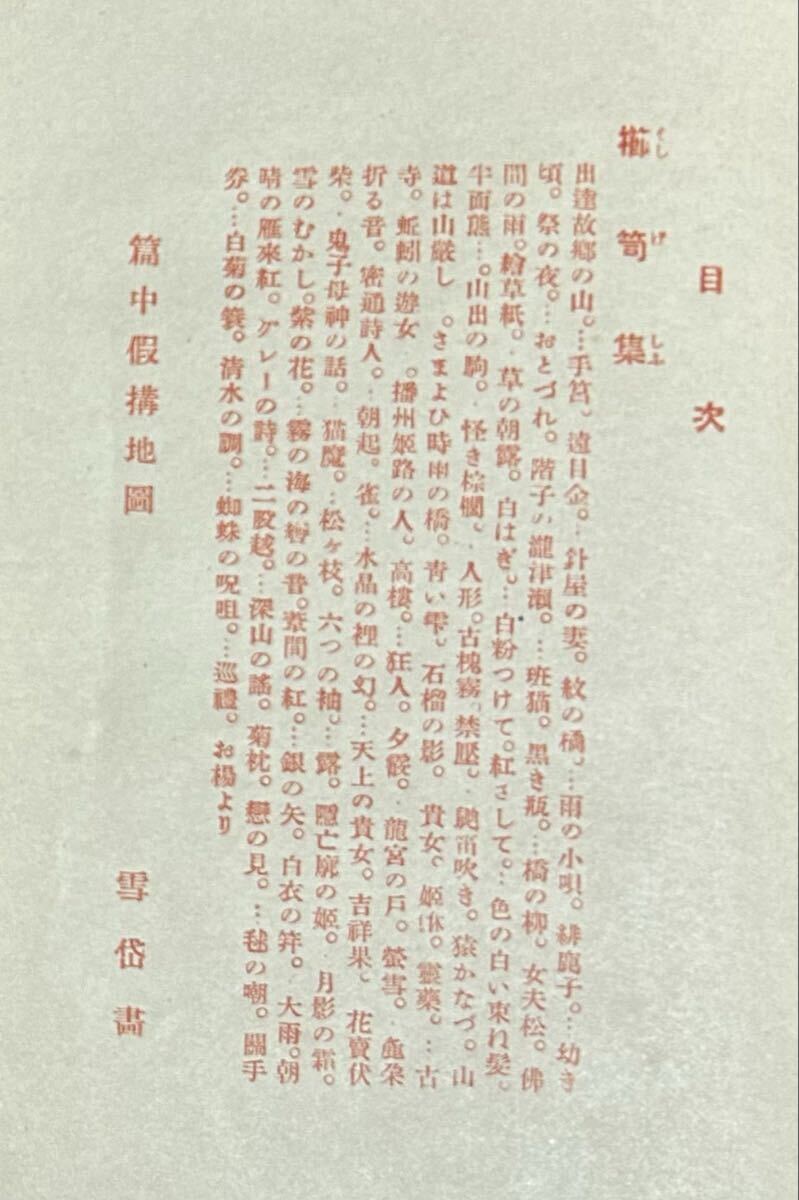 目次
櫛笥集
くしげしふ
出逹故鄕の山。…手筥。遠目金。…針屋の妻。紋の橘。…雨の小唄。緋鹿子。…幼き
頃。祭の夜。…おとづれ。階子の瀧津瀨。…班猫。黑き瓶。…橋の柳。女夫松。佛
間の雨。繪草紙。…草の朝露。白はぎ。…白粉つけて。紅さして。…色の白い束ね髮。
半面熊…。山出の駒。…怪き棕櫚。…人形。古槐霧。禁厭。…鼬笛吹き。猿かなづ。山
道は山嚴し…。さまよひ時雨の橋。靑い雫。石榴の影。…貴女。姬。靈藥。…古
寺。蚯蚓の遊女…。播州姬路の人。高樓。…狂人。夕餐。…龍宮の戶。螢雪。…鹿朶
折る音。密通詩人。…朝起。雀。…水晶の裡の幻。…天上の貴女。吉祥果。…花賣伏
柴。…鬼子母神の話。…猫魔。…松ヶ枝。六つの袖。…露。隱亡廓の姬。…月影の霜。
雪のむかし。紫の花。…霧の海の響の音。葦間の紅。…銀の矢。白衣の筓。…大雨。朝
晴の雁來紅。グレーの詩。…二股越。…深山の謠。菊枕。戀の見。…毬の嘲。鬪手
券。…白菊の簑。淸水の調。…蜘蛛の呪咀。…巡禮。お楊より
篇中假搆地圖
雪岱畵